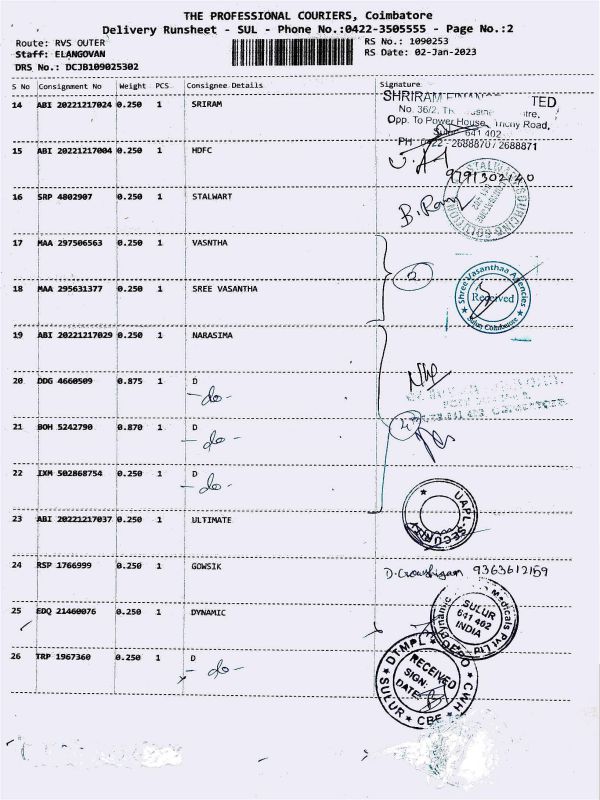 THE PROFESSIONAL COURIERS, Coimbatore
Delivery Runsheet - SUL - Phone No.:0422-3505555 - Page No.:2
Route: RVS OUTER
RS No.: 1090253
Staff: ELANGOVAN
RS Date: 02-Jan-2023
DRS No.: DCJB109025302
S No Consignment No Weight PCS Consignee Details Signature
14 ABI 20221217024 0.250 1 SRIRAM
SHRIRAM TED
No. 36/2,
Opp. To Power House, Trichy Road,
Sulur 641 402
PH 0422 - 2688870 / 2688871
15 ABI 20221217004 0.250 1 HDFC
9791302140
16 SRP 4802907 0.250 1 STALWART
B. Ram
17 MAA 297506563 0.250 1 VASNTHA
2
18 MAA 295631377 0.250 1 SREE VASANTHA
Shree Vasanthaa Agencies
Received
Sulur Coimbatore
19 ABI 20221217029 0.250 1 NARASIMA
20 DDG 4660509 0.875 1 D
- do -
21 BOH 5242790 0.870 1 D
- do -
4
22 IXM 502868754 0.250 1 D
- do -
23 ABI 20221217037 0.250 1 ULTIMATE
UAPL SECURITY
24 RSP 1766999 0.250 1 GOWSIK
9363612159
25 EDQ 21460076 0.250 1 DYNAMIC
Dynamic Medicals Pvt Ltd
SULUR
641 402
INDIA
26 TRP 1967360 0.250 1 D
- do -
DTMPL DEPO CWH CBE SULUR
RECEIVED
SIGN:
DATE: